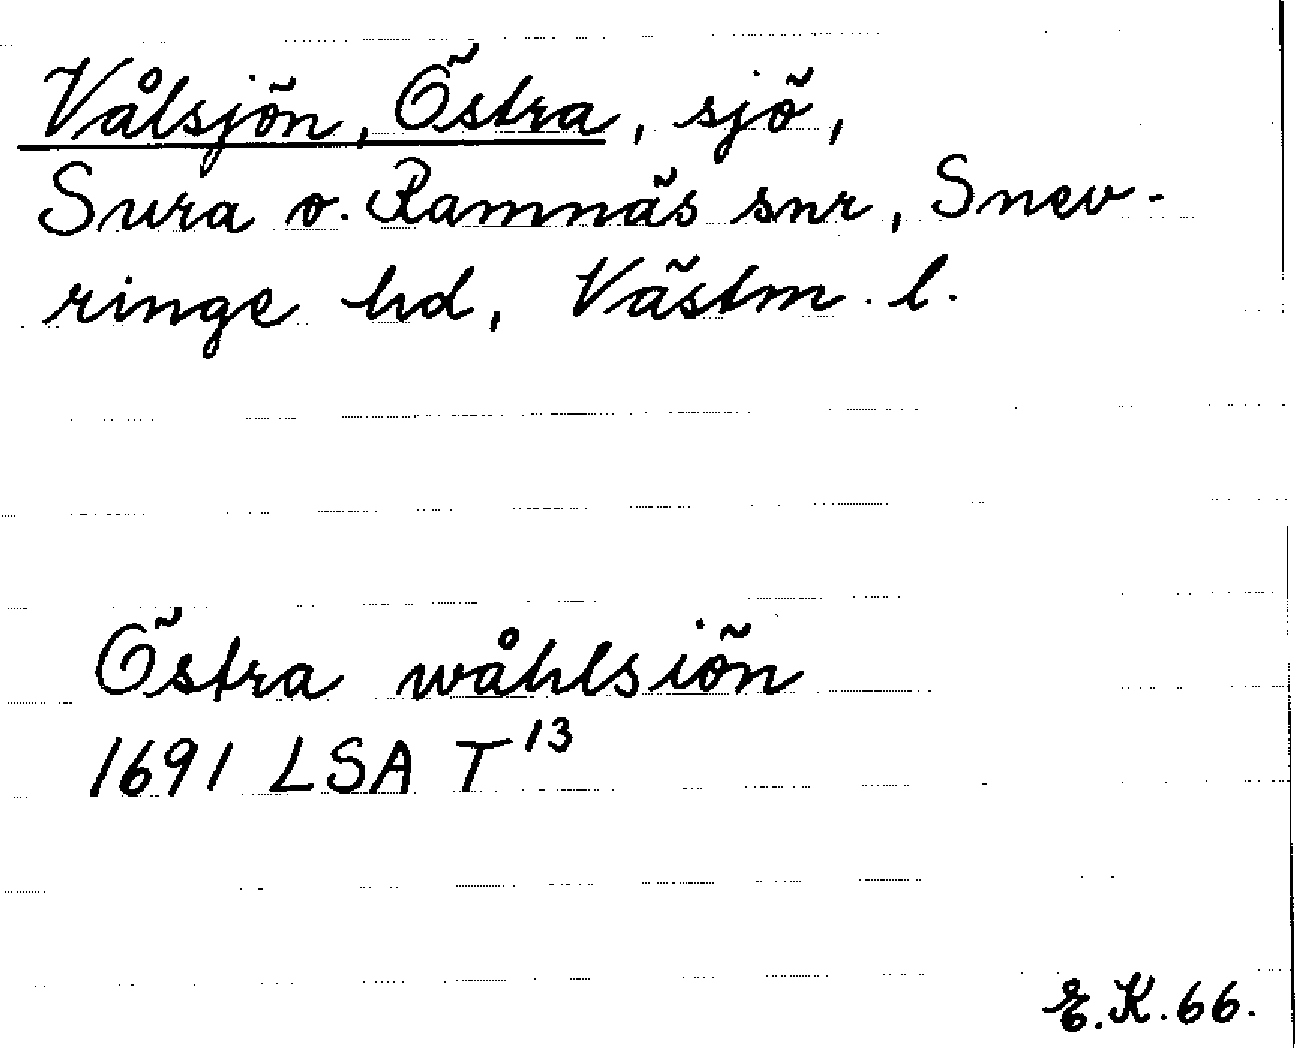 Vålsjön, Östra, sjö,
Sura o. Ramnäs snr, Snev-
ringe hd, Västm. l.
Östra wåhlsiön
1691 LSA T13
E.K.66.